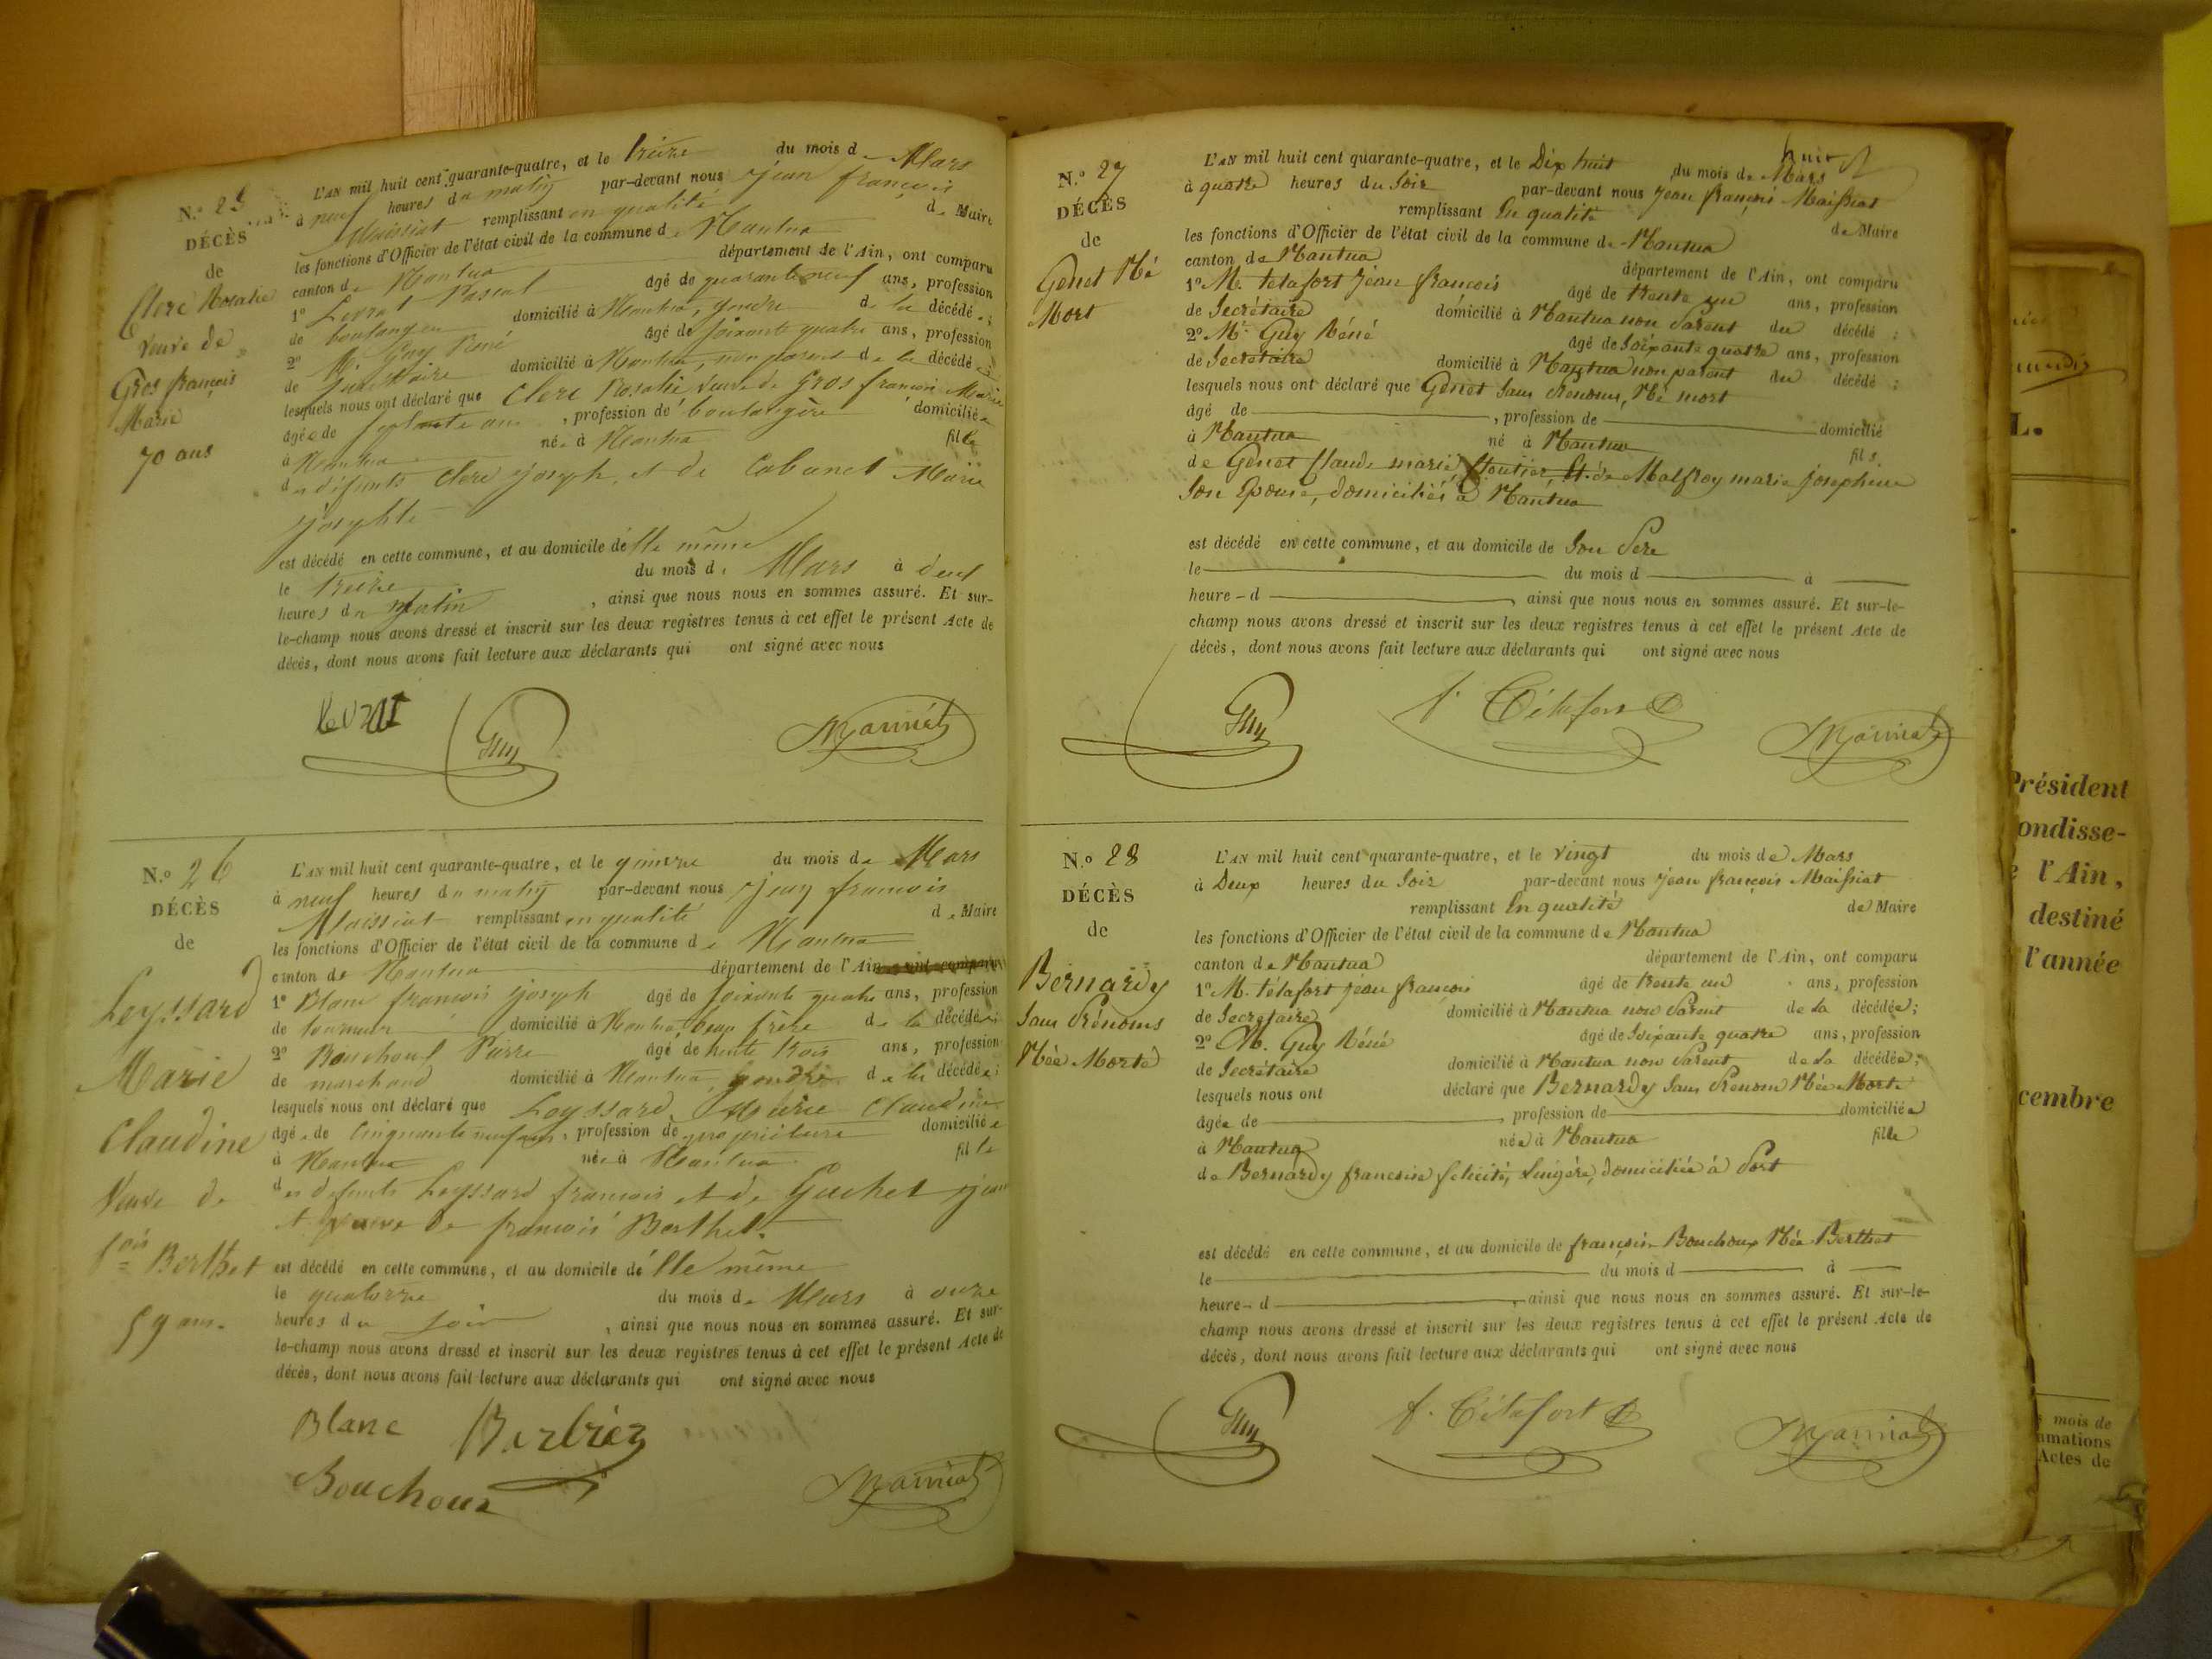 N.º 25
DÉCÈS
de
Clerc Rosalie
veuve de
Gros françois
Marie
70 ans
L'AN mil huit cent quarante-quatre, et le treize du mois de Mars
à neuf heures du matin par-devant nous jean françois
Maissiat remplissant en qualité de Maire
les fonctions d'Officier de l'état civil de la commune de Nantua
canton de Nantua département de l'Ain, ont comparu
1º Levrat Pascal âgé de quarante neuf ans, profession
de boulanger domicilié à Nantua, gendre de la décédée;
2º M. Guy René âgé de soixante quatre ans, profession
de secrétaire domicilié à Nantua, non parent de la décédée;
lesquels nous ont déclaré que Clerc Rosalie veuve de Gros françois Marie
âgée de septante ans, profession de boulangère domiciliée
à Nantua née à Nantua fille
des défunts Clerc joseph et de Cabanet Marie
josephte
est décédé en cette commune, et au domicile d'elle même
le treize du mois de Mars à deux
heures du matin, ainsi que nous nous en sommes assuré. Et sur-
le-champ nous avons dressé et inscrit sur les deux registres tenus à cet effet le présent Acte de
décès, dont nous avons fait lecture aux déclarants qui ont signé avec nous
levrat Guy Maissiat
N.º 26
DÉCÈS
de
Leyssard
Marie
Claudine
Veuve de
f.ois Berthet
59 ans.
L'AN mil huit cent quarante-quatre, et le quinze du mois de Mars
à neuf heures du matin par-devant nous jean françois
Maissiat remplissant en qualité de Maire
les fonctions d'Officier de l'état civil de la commune de Nantua
canton de Nantua département de l'Ain, ont comparu
1º Blanc françois joseph âgé de soixante quatre ans, profession
de tourneur domicilié à Nantua, beau frère de la décédée;
2º Bouchoux Pierre âgé de trente trois ans, profession
de marchand domicilié à Nantua, gendre de la décédée;
lesquels nous ont déclaré que Leyssard, Marie Claudine
âgée de Cinquante neuf ans, profession de propriétaire domiciliée
à Nantua née à Nantua fille
des défunts Leyssard françois et de Gachet
et veuve de françois Berthet.
est décédé en cette commune, et au domicile d'elle même
le quatorze du mois de Mars à onze
heures du soir, ainsi que nous nous en sommes assuré. Et sur-
le-champ nous avons dressé et inscrit sur les deux registres tenus à cet effet le présent Acte de
décès, dont nous avons fait lecture aux déclarants qui ont signé avec nous
Blanc
Bouchoux Maissiat
N.º 27
DÉCÈS
de
Genet Né
Mort
huit
L'AN mil huit cent quarante-quatre, et le Dix huit du mois de Mars
à quatre heures du Soir par-devant nous jean françois Maissiat
remplissant En qualité de Maire
les fonctions d'Officier de l'état civil de la commune de Nantua
canton de Nantua département de l'Ain, ont comparu
1º M. tétafort jean françois âgé de trente un ans, profession
de Secrétaire domicilié à Nantua non Parent du décédé;
2º M. Guy Réné âgé de Soixante quatre ans, profession
de Secrétaire domicilié à Nantua non parent du décédé;
lesquels nous ont déclaré que Genet Sans Prénoms, Né mort
âgé de , profession de domicilié
à Nantua né à Nantua fils
de Genet Claude marie Et de Malfroy marie josephine
Son Epouse, domiciliés à Nantua
est décédé en cette commune, et au domicile de Son Père
le du mois d à
heure d , ainsi que nous nous en sommes assuré. Et sur-le-
champ nous avons dressé et inscrit sur les deux registres tenus à cet effet le présent Acte de
décès, dont nous avons fait lecture aux déclarants qui ont signé avec nous
Guy f. Tétafort Maissiat
N.º 28
DÉCÈS
de
Bernardy
Sans Prénoms
Née Morte
L'AN mil huit cent quarante-quatre, et le vingt du mois de Mars
à Deux heures du Soir par-devant nous jean françois Maissiat
remplissant En qualité de Maire
les fonctions d'Officier de l'état civil de la commune de Nantua
canton de Nantua département de l'Ain, ont comparu
1º M. tétafort jean françois âgé de trente un ans, profession
de Secrétaire domicilié à Nantua non Parent de la décédée;
2º M. Guy Réné âgé de Soixante quatre ans, profession
de Secrétaire domicilié à Nantua non Parent de la décédée;
lesquels nous ont déclaré que Bernardy Sans Prénom Née Morte
âgée de , profession de domiciliée
à Nantua née à Nantua fille
de Bernardy francoise felicité, Lingère, domiciliée à Port
est décédé en cette commune, et au domicile de Bouchoux Née Berthet
le du mois d à
heure d , ainsi que nous nous en sommes assuré. Et sur-le-
champ nous avons dressé et inscrit sur les deux registres tenus à cet effet le présent Acte de
décès, dont nous avons fait lecture aux déclarants qui ont signé avec nous
Guy f. Tétafort Maissiat
Président
ondisse-
l'Ain,
destiné
l'année
cembre
mois de
mations
Actes de